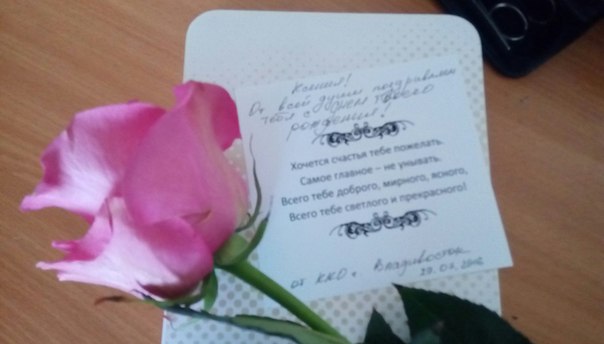 Ксения!
От всей души поздравляем
тебя с днем твоего
рождения!
Хочется счастья тебе пожелать.
Самое главное – не унывать.
Всего тебе доброго, мирного, ясного,
Всего тебе светлого и прекрасного!
от ККО г. Владивосток